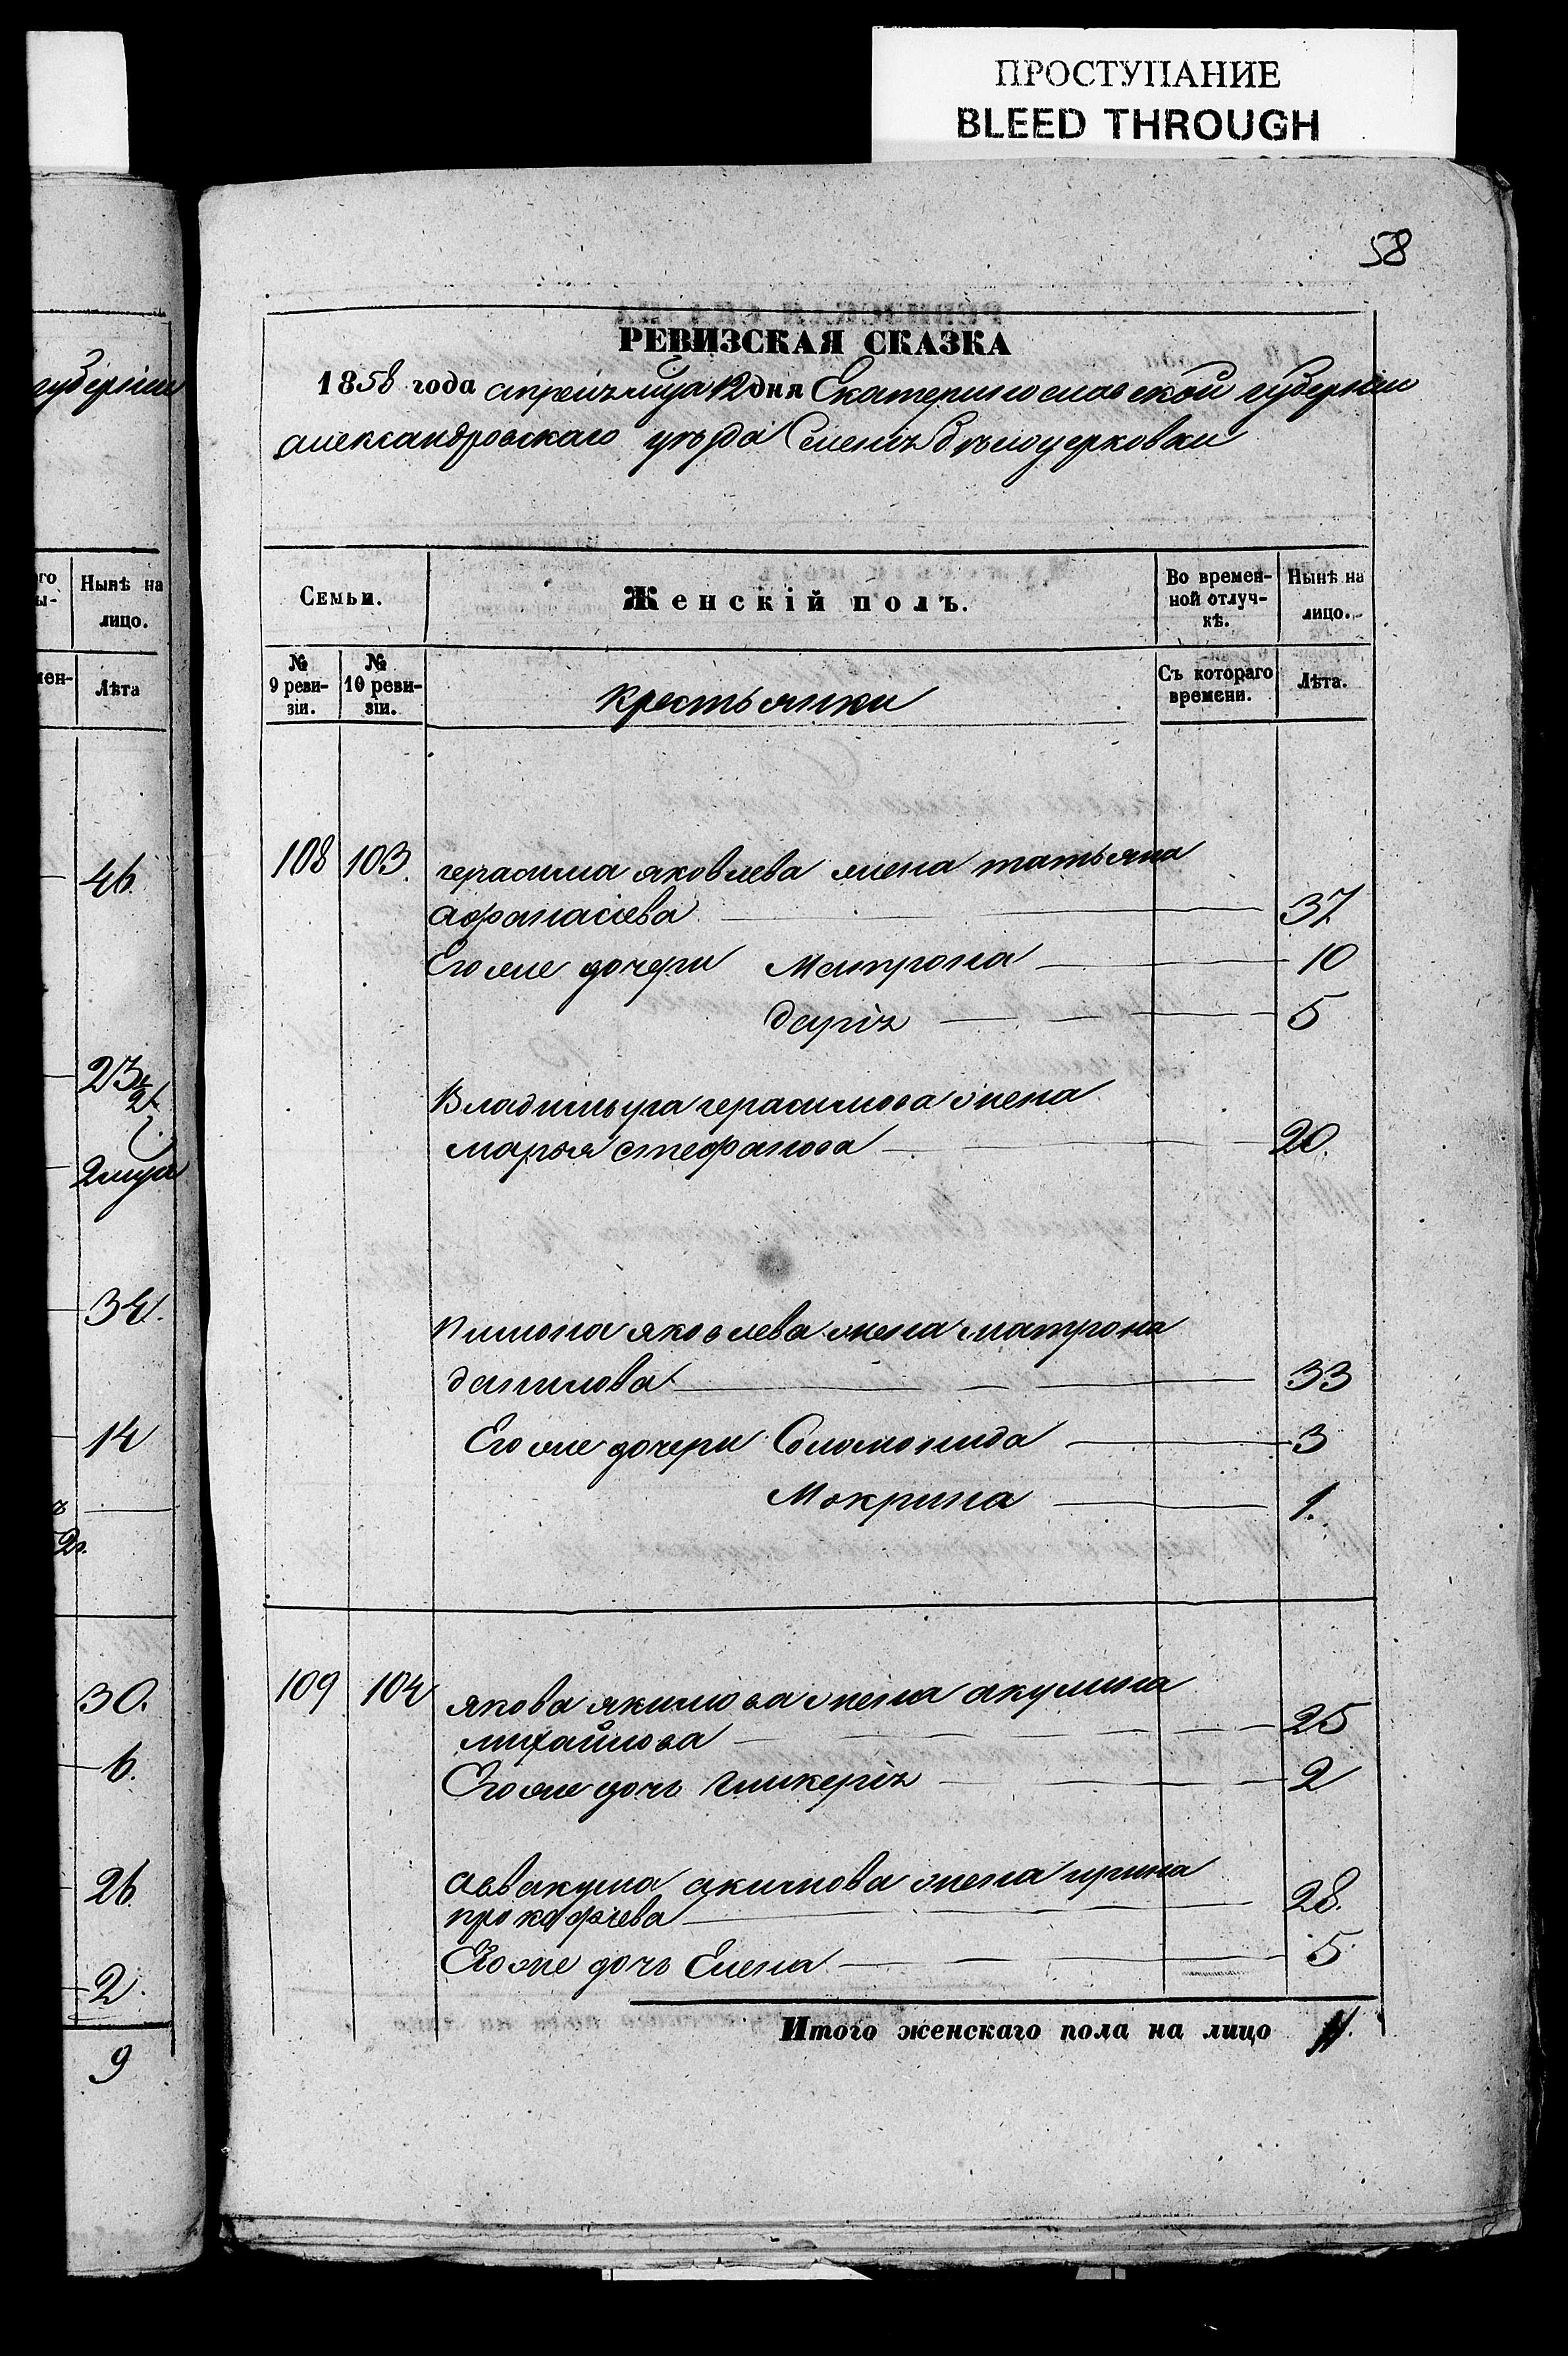 ПРОСТУПАНИЕ
BLEED THROUGH
58
РЕВИЗСКАЯ СКАЗКА
1858 года апреля мца 12 дня Екатеринославской губернии
александровскаго уезда Селенія бѣлоцерковки
Семьи.
Женскій полъ.
Во времен-
ной отлуч-
кѣ.
Нынѣ на
лицо.
№
9 реви-
зіи.
№
10 реви-
зіи.
крестьянки
Съ котораго
времени.
Лѣта.
108 103. герасима яковлева жена татьяна
афанасіева 37
Его же дочери Матрона 10
дарія 5
Владимира герасимова жена
марья стефанова 20.
яковлева жена матрона
данилова 33
Его же дочери Соломонида 3
Мокрина 1.
109 104 якова якимова жена акулина
михайлова 25
Его же дочь гликерія 2
аввакума акимова жена ирина
прокофіева 28.
Его же дочь Елена 5
Итого женскаго пола на лицо 11.
губерніи
го
ы-
Нынѣ на
лицо.
мен-
Лѣта
46.
23 1/2
2 мца
34.
14
30.
6.
26
2.
9